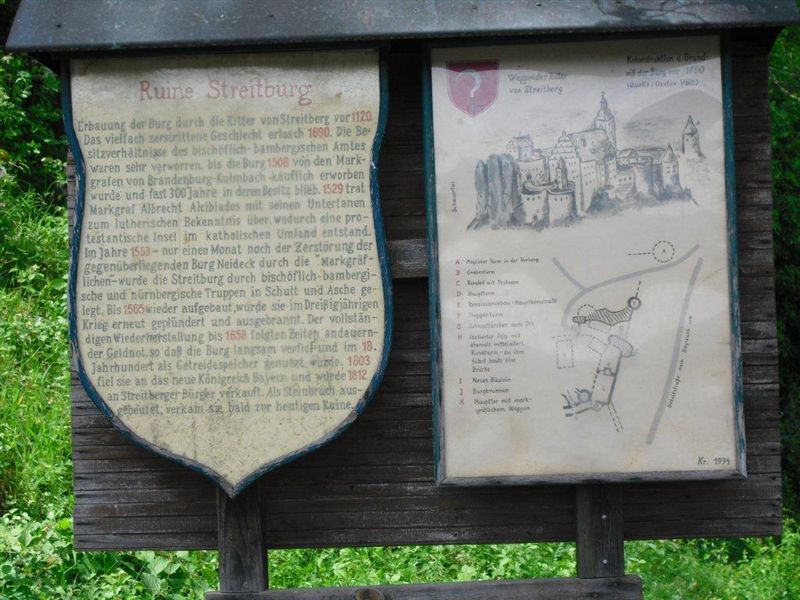 Ruine Streitburg
Erbauung der Burg durch die Ritter von Streitberg vor 1120.
Das vielfach zerstrittene Geschlecht erlosch 1690. Die Be-
sitzverhältnisse des bischöflich-bambergischen Amtes
waren sehr verworren, bis die Burg 1508 von den Mark-
grafen von Brandenburg-Kulmbach käuflich erworben
wurde und fast 300 Jahre in deren Besitz blieb. 1529 trat
Markgraf Albrecht Alcibiades mit seinen Untertanen
zum lutherischen Bekenntnis über, wodurch eine pro-
testantische Insel im katholischen Umland entstand.
Im Jahre 1553 - nur einen Monat nach der Zerstörung der
gegenüberliegenden Burg Neideck durch die "Markgräf-
lichen - wurde die Streitburg durch bischöflich-bambergi-
sche und nürnbergische Truppen in Schutt und Asche ge-
legt. Bis 1565 wieder aufgebaut, wurde sie im Dreißigjährigen
Krieg erneut geplündert und ausgebrannt. Der vollstän-
digen Wiederherstellung bis 1658 folgten Zeiten andauern-
der Geldnot, so daß die Burg langsam verfiel und im 18.
Jahrhundert als Getreidespeicher genutzt wurde. 1803
fiel sie an das neue Königreich Bayern und wurde 1812
an Streitberger Bürger verkauft. Als Steinbruch aus-
gebeutet, verkam sie bald zur heutigen Ruine.
?
Wappen der Ritter
von Streitberg
Rekonstruktion u. Grund-
riß der Burg vor 1760
(Quelle: Gustav Voit)
A Möglicher Turm in der Vorburg
B Geschützturm
C Rondell mit
D Hauptturm
E Renaissancebau: Hauptkemenate
F Treppenturm
G Schlupftürchen zum Ort
H Isolierter Fels mit
ehemals mittelalterl.
Rundturm - zu ihm
führt heute eine
Brücke
I Neues Bäulein
J Burgbrunnen
K Haupttor mit mark-
gräflichem Wappen
A
Kr. 1994